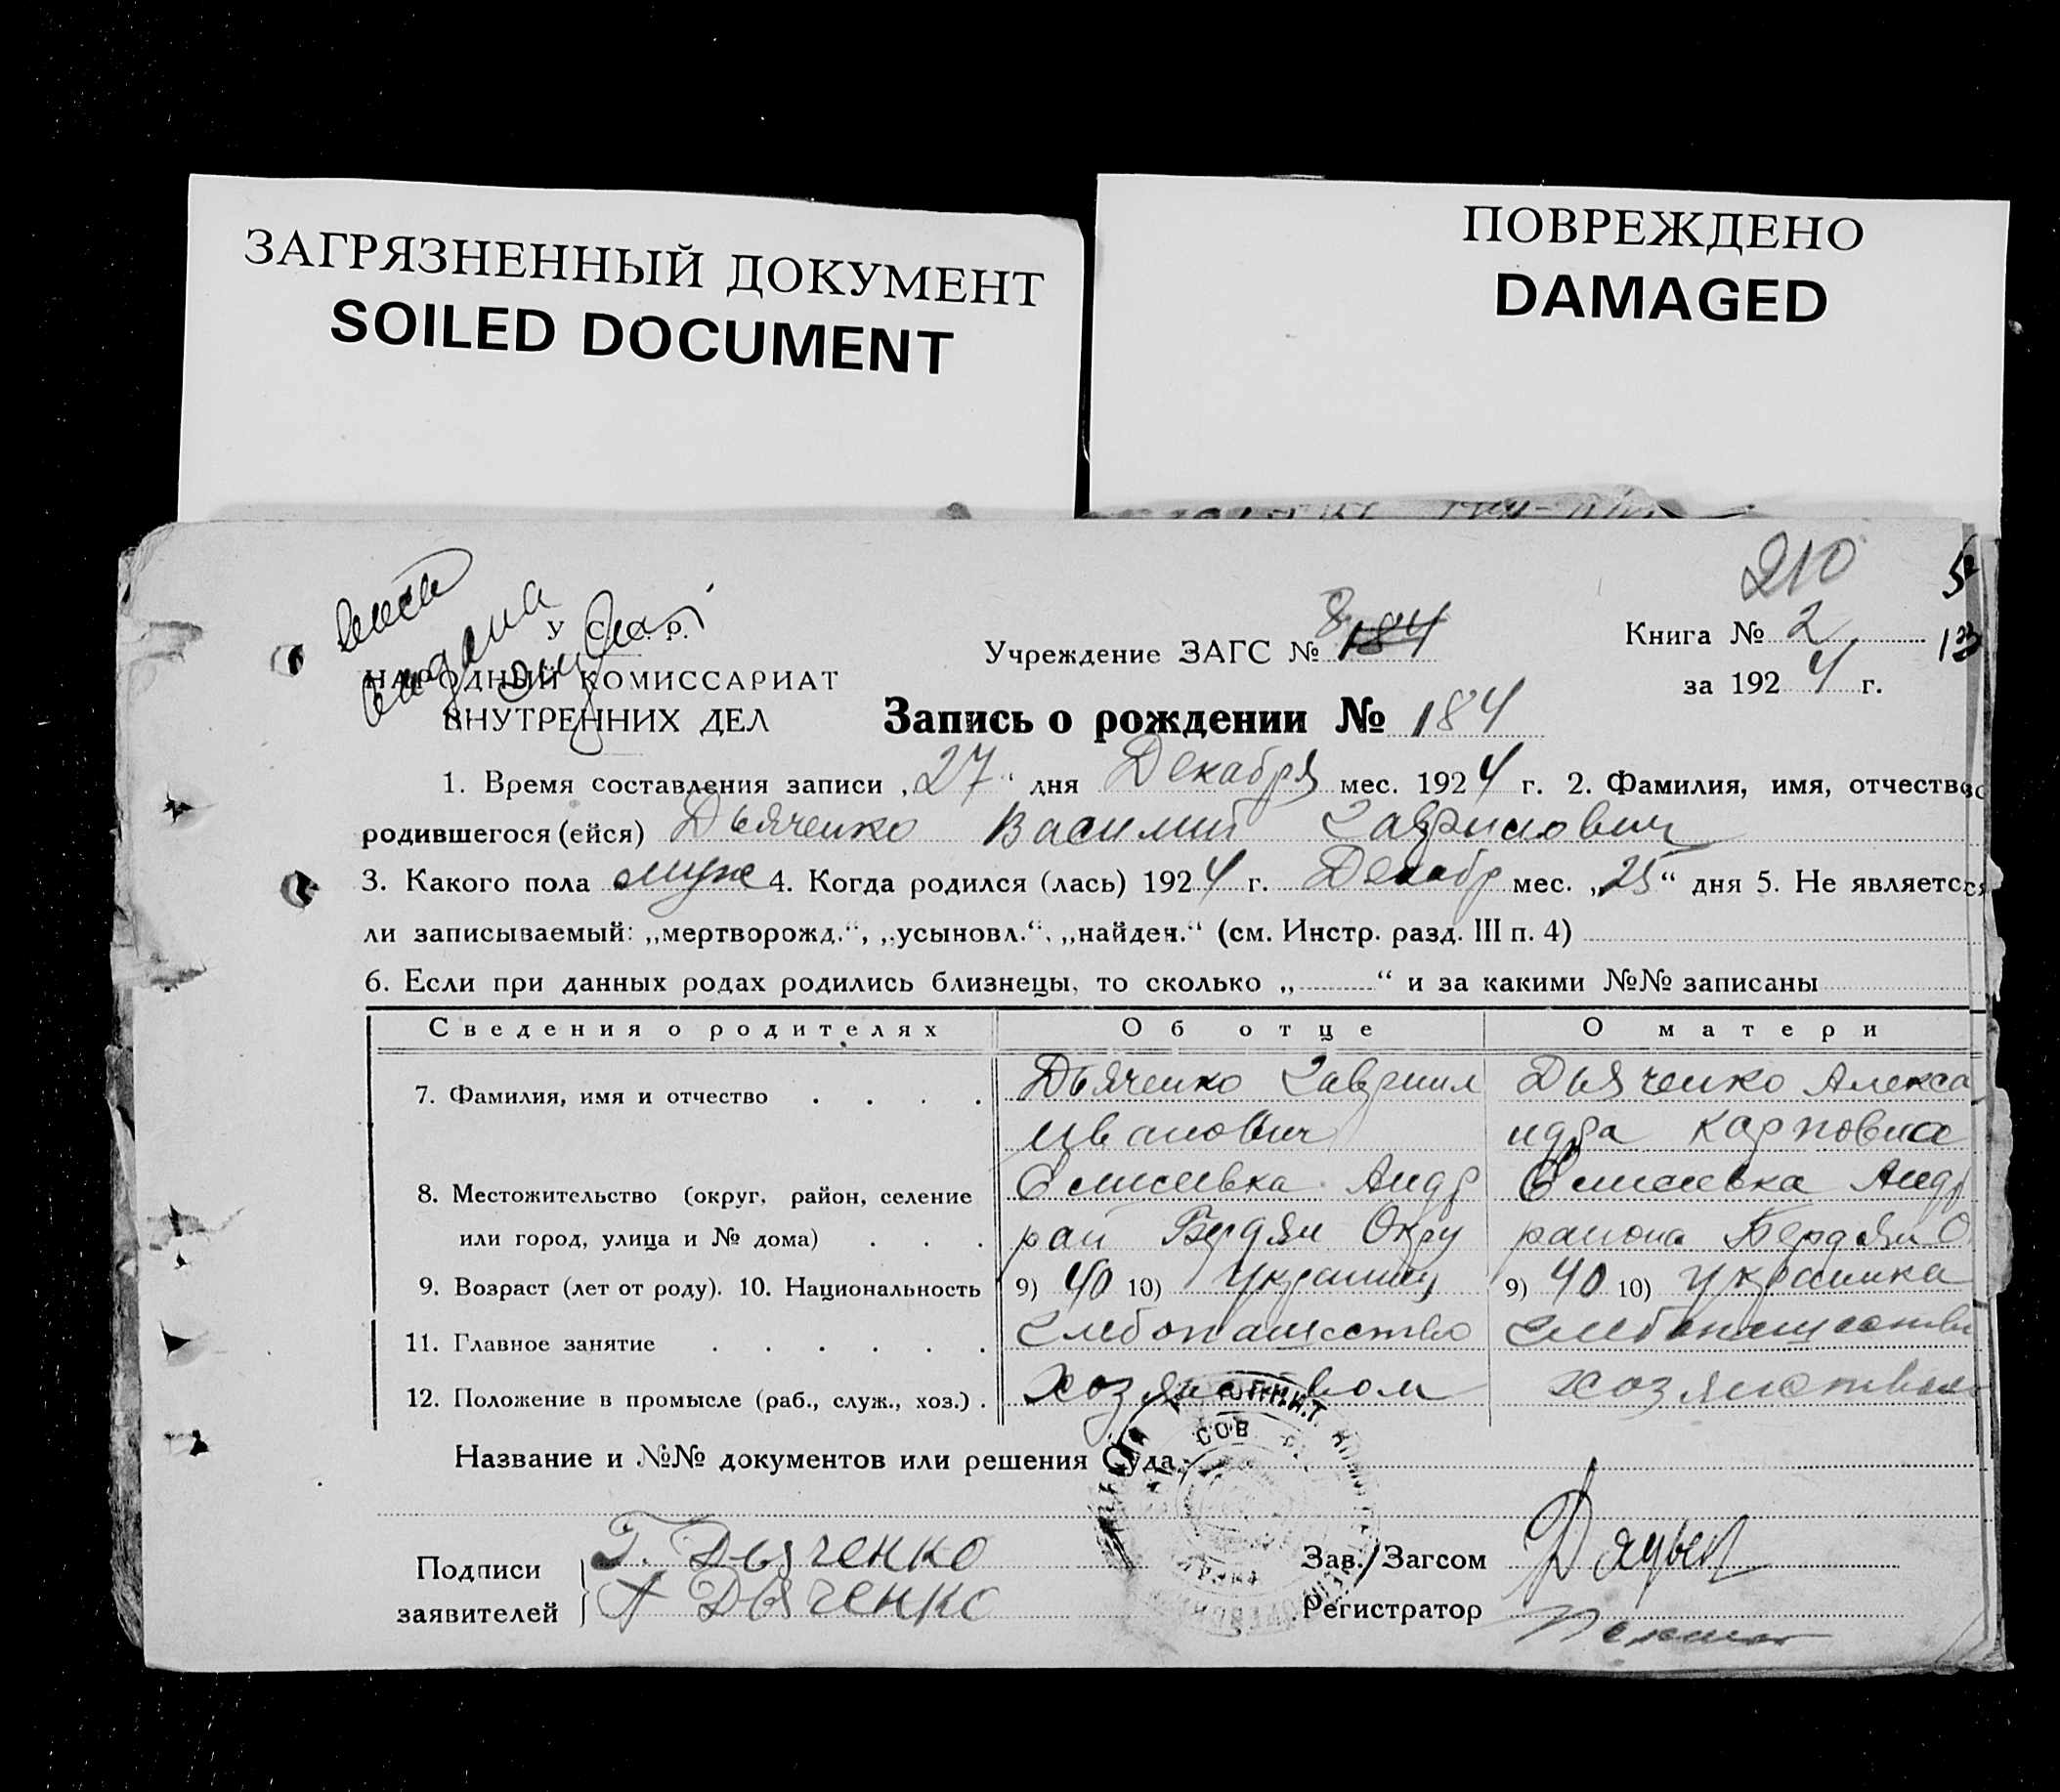 ЗАГРЯЗНЕННЫЙ ДОКУМЕНТ
SOILED DOCUMENT
ПОВРЕЖДЕНО
DAMAGED
210
5
13
У. С. С. Р.
НАРОДНЫЙ КОМИССАРИАТ
ВНУТРЕННИХ ДЕЛ
Учреждение ЗАГС № 8 184
Книга № 2
за 1924 г.
Запись о рождении № 184
1. Время составления записи „27“ дня Декабря мес. 1924 г. 2. Фамилия, имя, отчество
родившегося (ейся) Дьяченко Василий Гаврилович
3. Какого пола муж 4. Когда родился (лась) 1924 г. Декабр мес. „25“ дня 5. Не является
ли записываемый: „мертворожд.“, „усыновл.“, „найден.“ (см. Инстр. разд. III п. 4)
6. Если при данных родах родились близнецы, то сколько „ “ и за какими №№ записаны
Сведения о родителях Об отце О матери
7. Фамилия, имя и отчество Дьяченко Гавриил Дьяченко Алекса
Иванович ндра Карповна
8. Местожительство (округ, район, селение Елисеевка Андр Елисеевка Андр
или город, улица и № дома) рай Бердян Окру района Бердян О
9. Возраст (лет от роду). 10. Национальность 9) 40 10) Украинец 9) 40 10) Украинка
11. Главное занятие Хлебопашество Хлебопашество
12. Положение в промысле (раб., служ., хоз.) Хозяйством Хозяйством
Название и №№ документов или решения Суда
СОВ
Подписи Г. Дьяченко Зав. Загсом
заявителей А Дьяченко Регистратор